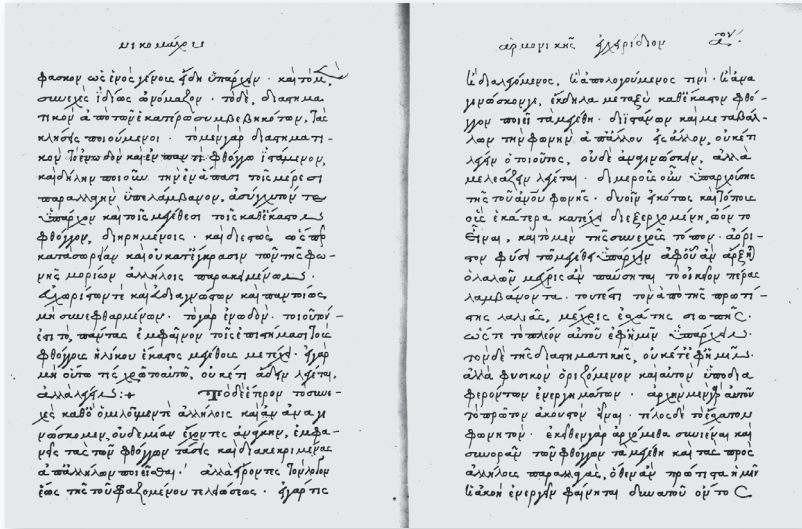 νικομάχου
φασκον ὡς ἑνὸς γένους εἴδη ὑπάρχειν · καὶ τὸ μὲν
συνεχὲς ἰδίως ὠνόμαζον · τὸ δὲ, διαστημα
τικὸν ἀπὸ τῶν ἑκατέρω συμβεβηκότων, τὰς
κλήσεις ποιούμενοι · τὸ μὲν γὰρ διαστηματι-
κὸν τὸ ἔνωδον καὶ ἐν παντὶ φθόγγω ἱστάμενον,
καὶ δήλην ποιοῦν τὴν ἐν ἅπασι τοῖς μέρεσι
παραλλαγὴν ὑπελάμβανον, ἀσύγχυτόν τε
ὑπάρχον καὶ τοῖς μεγέθεσι τοῖς καθ' ἕκαστον
φθόγγον, διηρημένοις · καὶ διεστὼς ὥσπερ
κατὰ σωρείαν καὶ οὐ κατ' ἔγκρασιν τῶν τῆς φω-
νῆς μορίων ἀλλήλοις παρακειμένων ·
εὐχωρίστων τε καὶ εὐδιαγνώστων καὶ παντοίως
μὴ συνεφθαρμένων · τὸ γὰρ ἔνωδον · τοιοῦτόν -
ἐστι τὸ, πάντας ἐμφαῖνον τοῖς ἐπιστήμοσι τοὺς
φθόγγους ἡλίκου ἕκαστος μεγέθους μετέχει · εἰ γὰρ
μὴ οὕτω τίς χρῶτο αὐτῶ, οὐκέτι ἄδειν λέγεται,
ἀλλὰ λέγειν :+ Τὸ δὲ ἕτερον τὸ συνε-
χὲς καθ' ὃ ὁμιλοῦμέν τε ἀλλήλοις καὶ ἀναγι
νώσκομεν, οὐδεμίαν ἔχοντες ἀνάγκην, ἐμφα-
νεῖς τὰς τῶν φθόγγων τάσεις καὶ διακεκριμένας
ἀπ' ἀλλήλων ποιεῖσθαι · ἀλλὰ εἴροντες τὸν λόγον
ἕως τῆς τοῦ φραζομένου τελειώσεως · εἰ γάρ τις
ἁρμονικῆς ἐγχειρίδιον
ἢ διαλεγόμενος, ἢ ἀπολογούμενός τινι · ἢ ἀνα
γινώσκων γε, ἔκδηλα μεταξὺ καθ' ἕκαστον φθό-
γγον ποιεῖ τὰ μεγέθη · διϊστάνων καὶ μεταβάλ-
λων τὴν φωνὴν ἀπ' ἄλλου εἰς ἄλλον, οὐκέτι
λέγειν ὁ τοιοῦτος, οὐδὲ ἀναγινώσκειν, ἀλλὰ
μελεάζειν λέγεται · διμεροῦς οὖν ὑπαρχούσης
τῆς τοῦ ἀνθρώπου φωνῆς · δυοῖν εἰκότως καὶ τόπους
οὓς ἑκάτερα κατέχει διεξερχομένη, ὤοντο
εἶναι, καὶ τὸν μὲν τῆς συνεχοῦς τόπον · ἀόρι-
στον φύσει τὸ μέγεθος ὑπάρχειν ἀφ' οὗ ἂν ἄρξηται
ὁ λαλῶν μέχρις ἂν παύσηται τὸ οἰκεῖον πέρας
λαμβάνοντα · τουτέστι τὸν ἀπὸ τῆς πρωτί-
στης λαλιᾶς, μέχρις ἐσχάτης σιωπῆς ·
ὥστε τὸ πλέον αὐτοῦ ἐφ' ἡμῖν ὑπάρχειν ·
τὸν δὲ τῆς διαστηματικῆς, οὐκέτ' ἐφ' ἡμῖν
ἀλλὰ φυσικὸν ὁριζόμενον καὶ αὐτὸν ὑπὸ δια
φερόντων ἐνεργημάτων · ἀρχὴν μὲν γὰρ αὐτοῦ
τὸ πρῶτον ἀκουστὸν εἶναι · τέλος δὲ τὸ ἔσχατον
φωνητόν · ἐκεῖθεν γὰρ ἀρχόμεθα συνιέναι καὶ
συνορᾶν τῶν φθόγγων τὰ μεγέθη καὶ τὰς πρὸς
ἀλλήλους παραλλαγὰς, ὅθεν ἂν πρώτιστα ἡμῖν
ἡ ἀκοὴ ἐνεργεῖν φαίνηται δυνατοῦ ὄντος